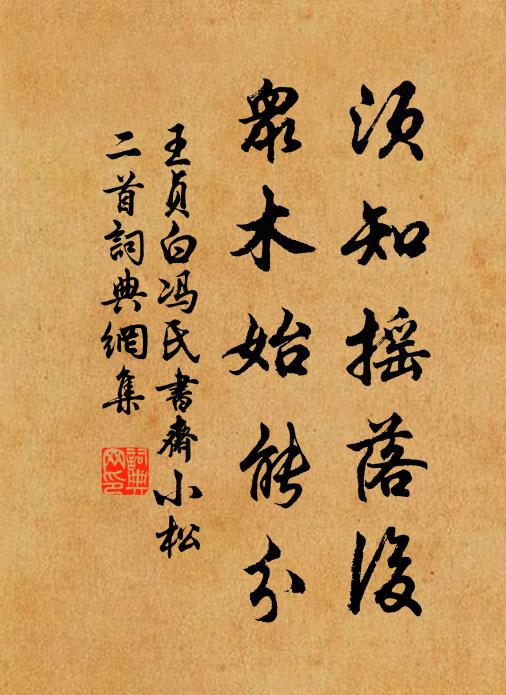 須知摇落後
衆木始能分
王貞白冯氏書齋小松
二首詞典網集
詞典網印